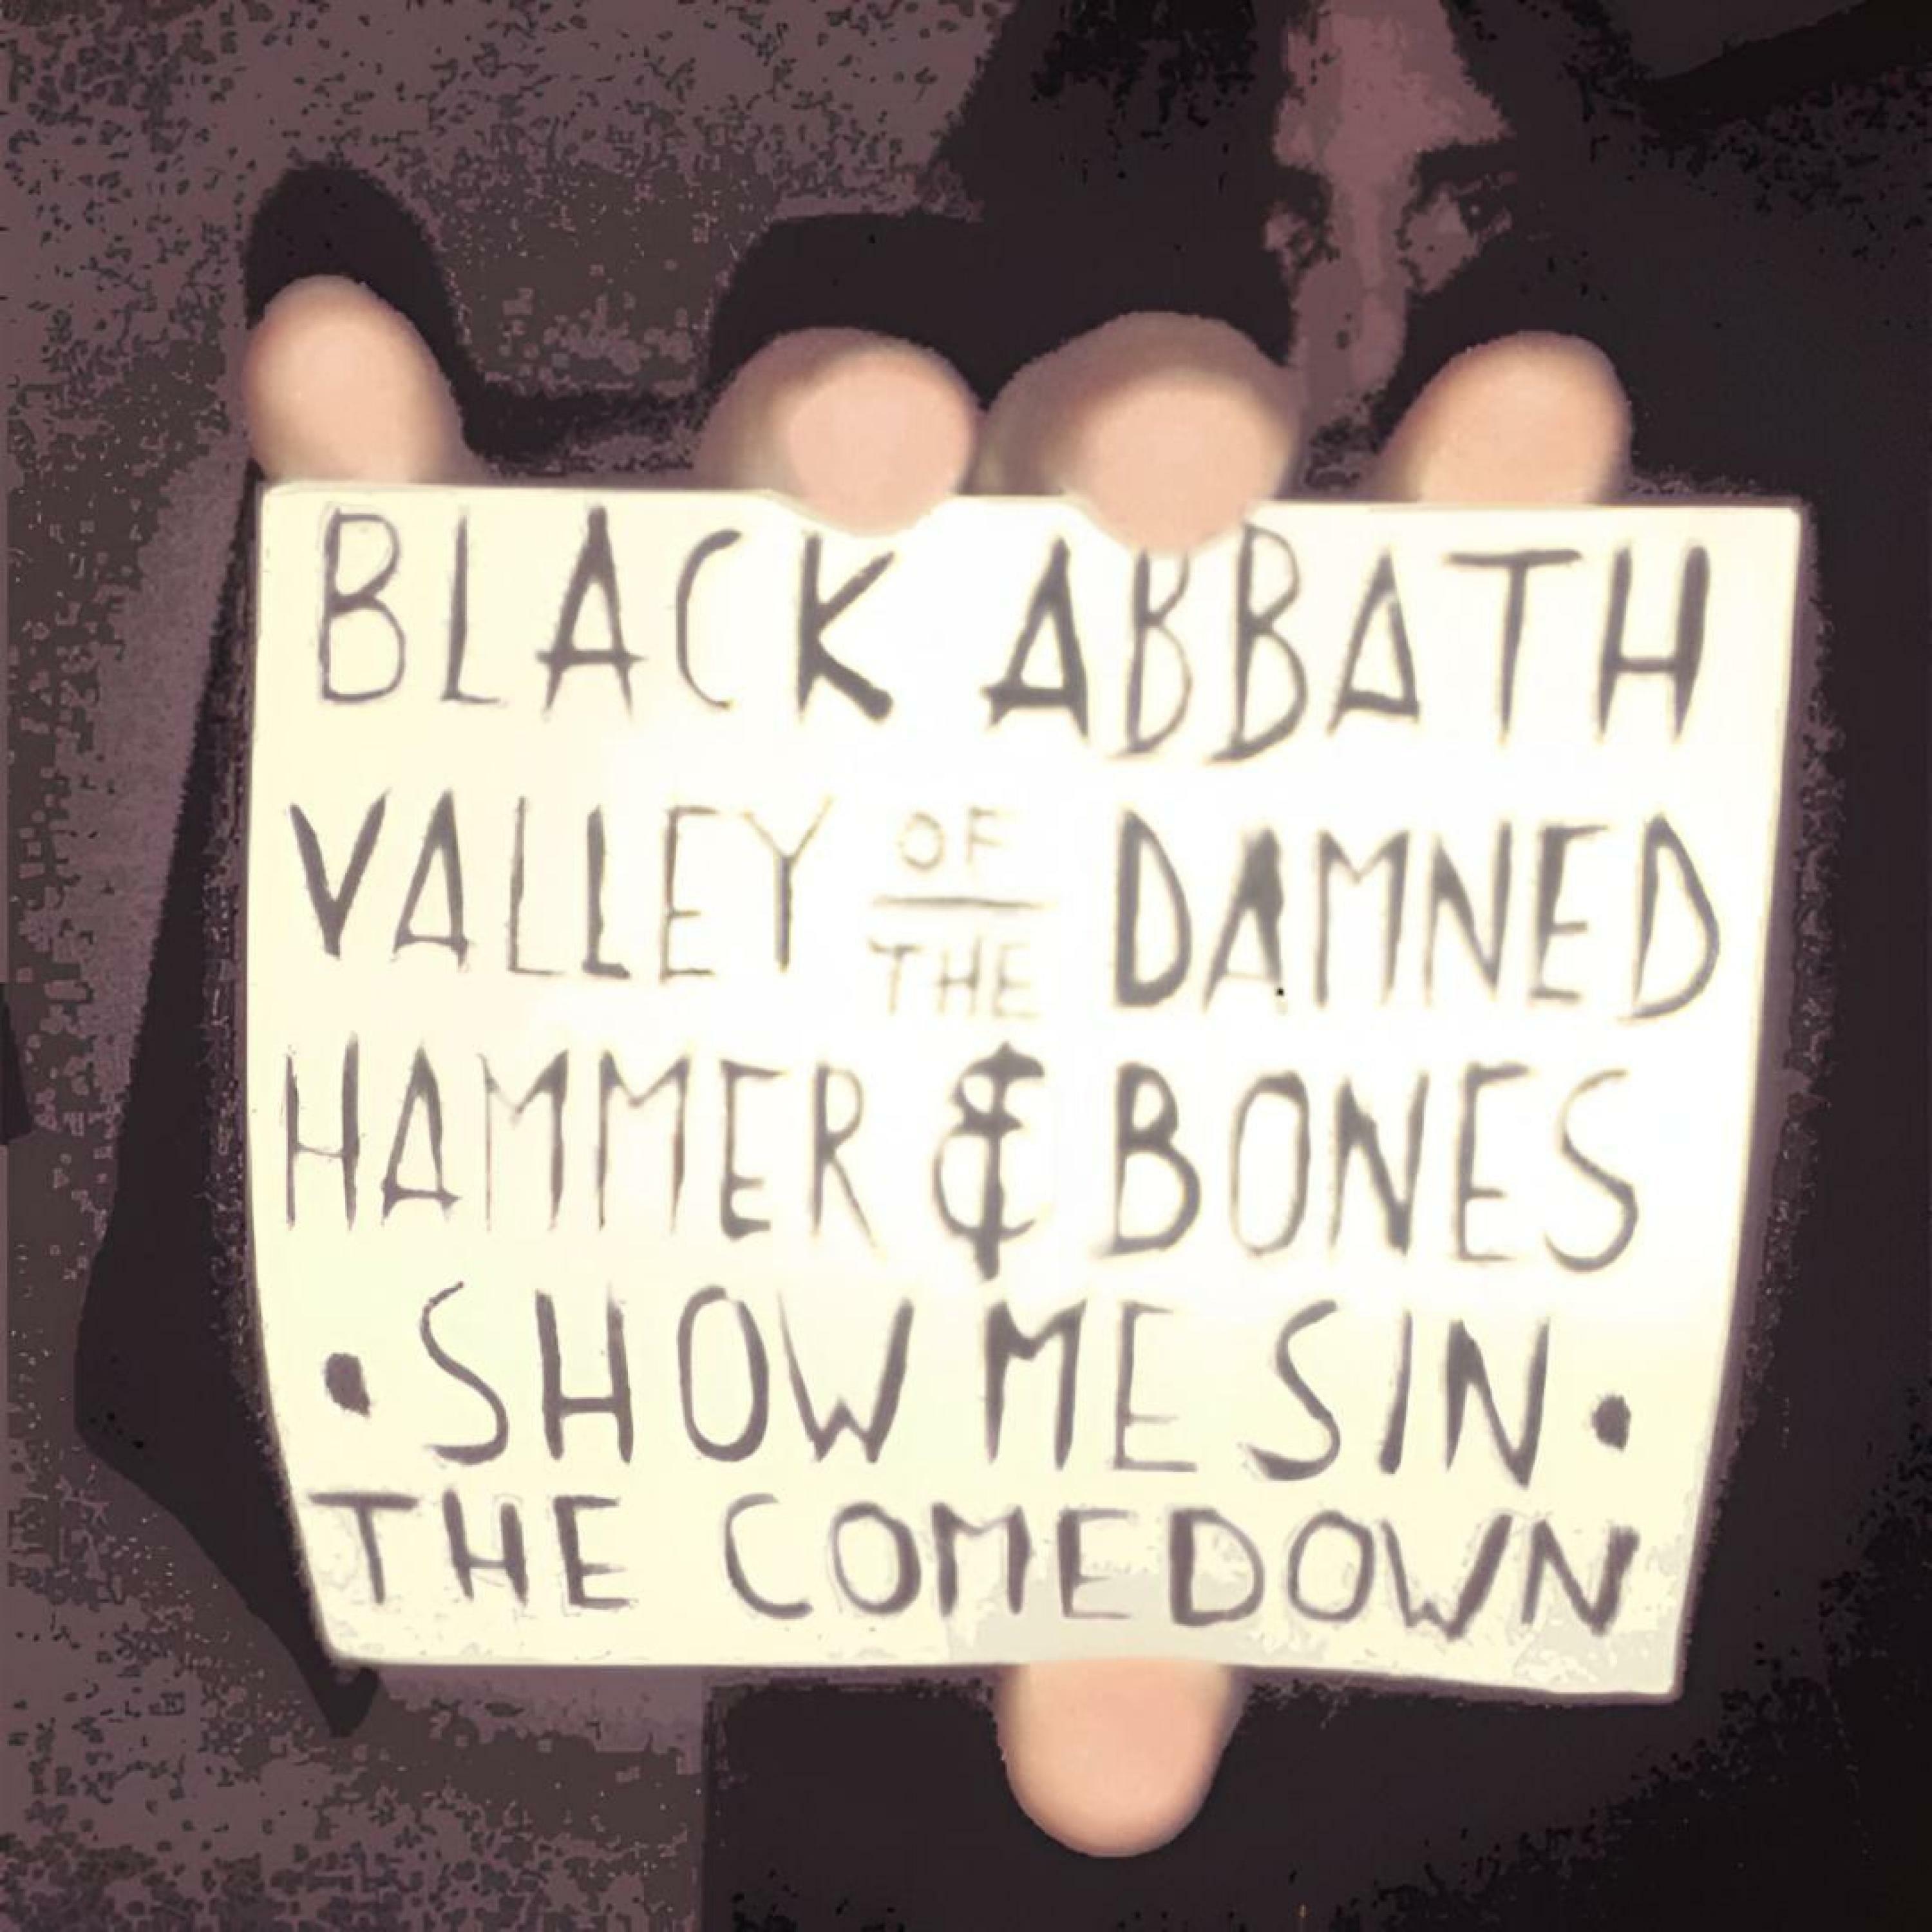 BLACK ABBATH
VALLEY OF THE DAMNED
HAMMER & BONES
• SHOW ME SIN •
THE COMEDOWN